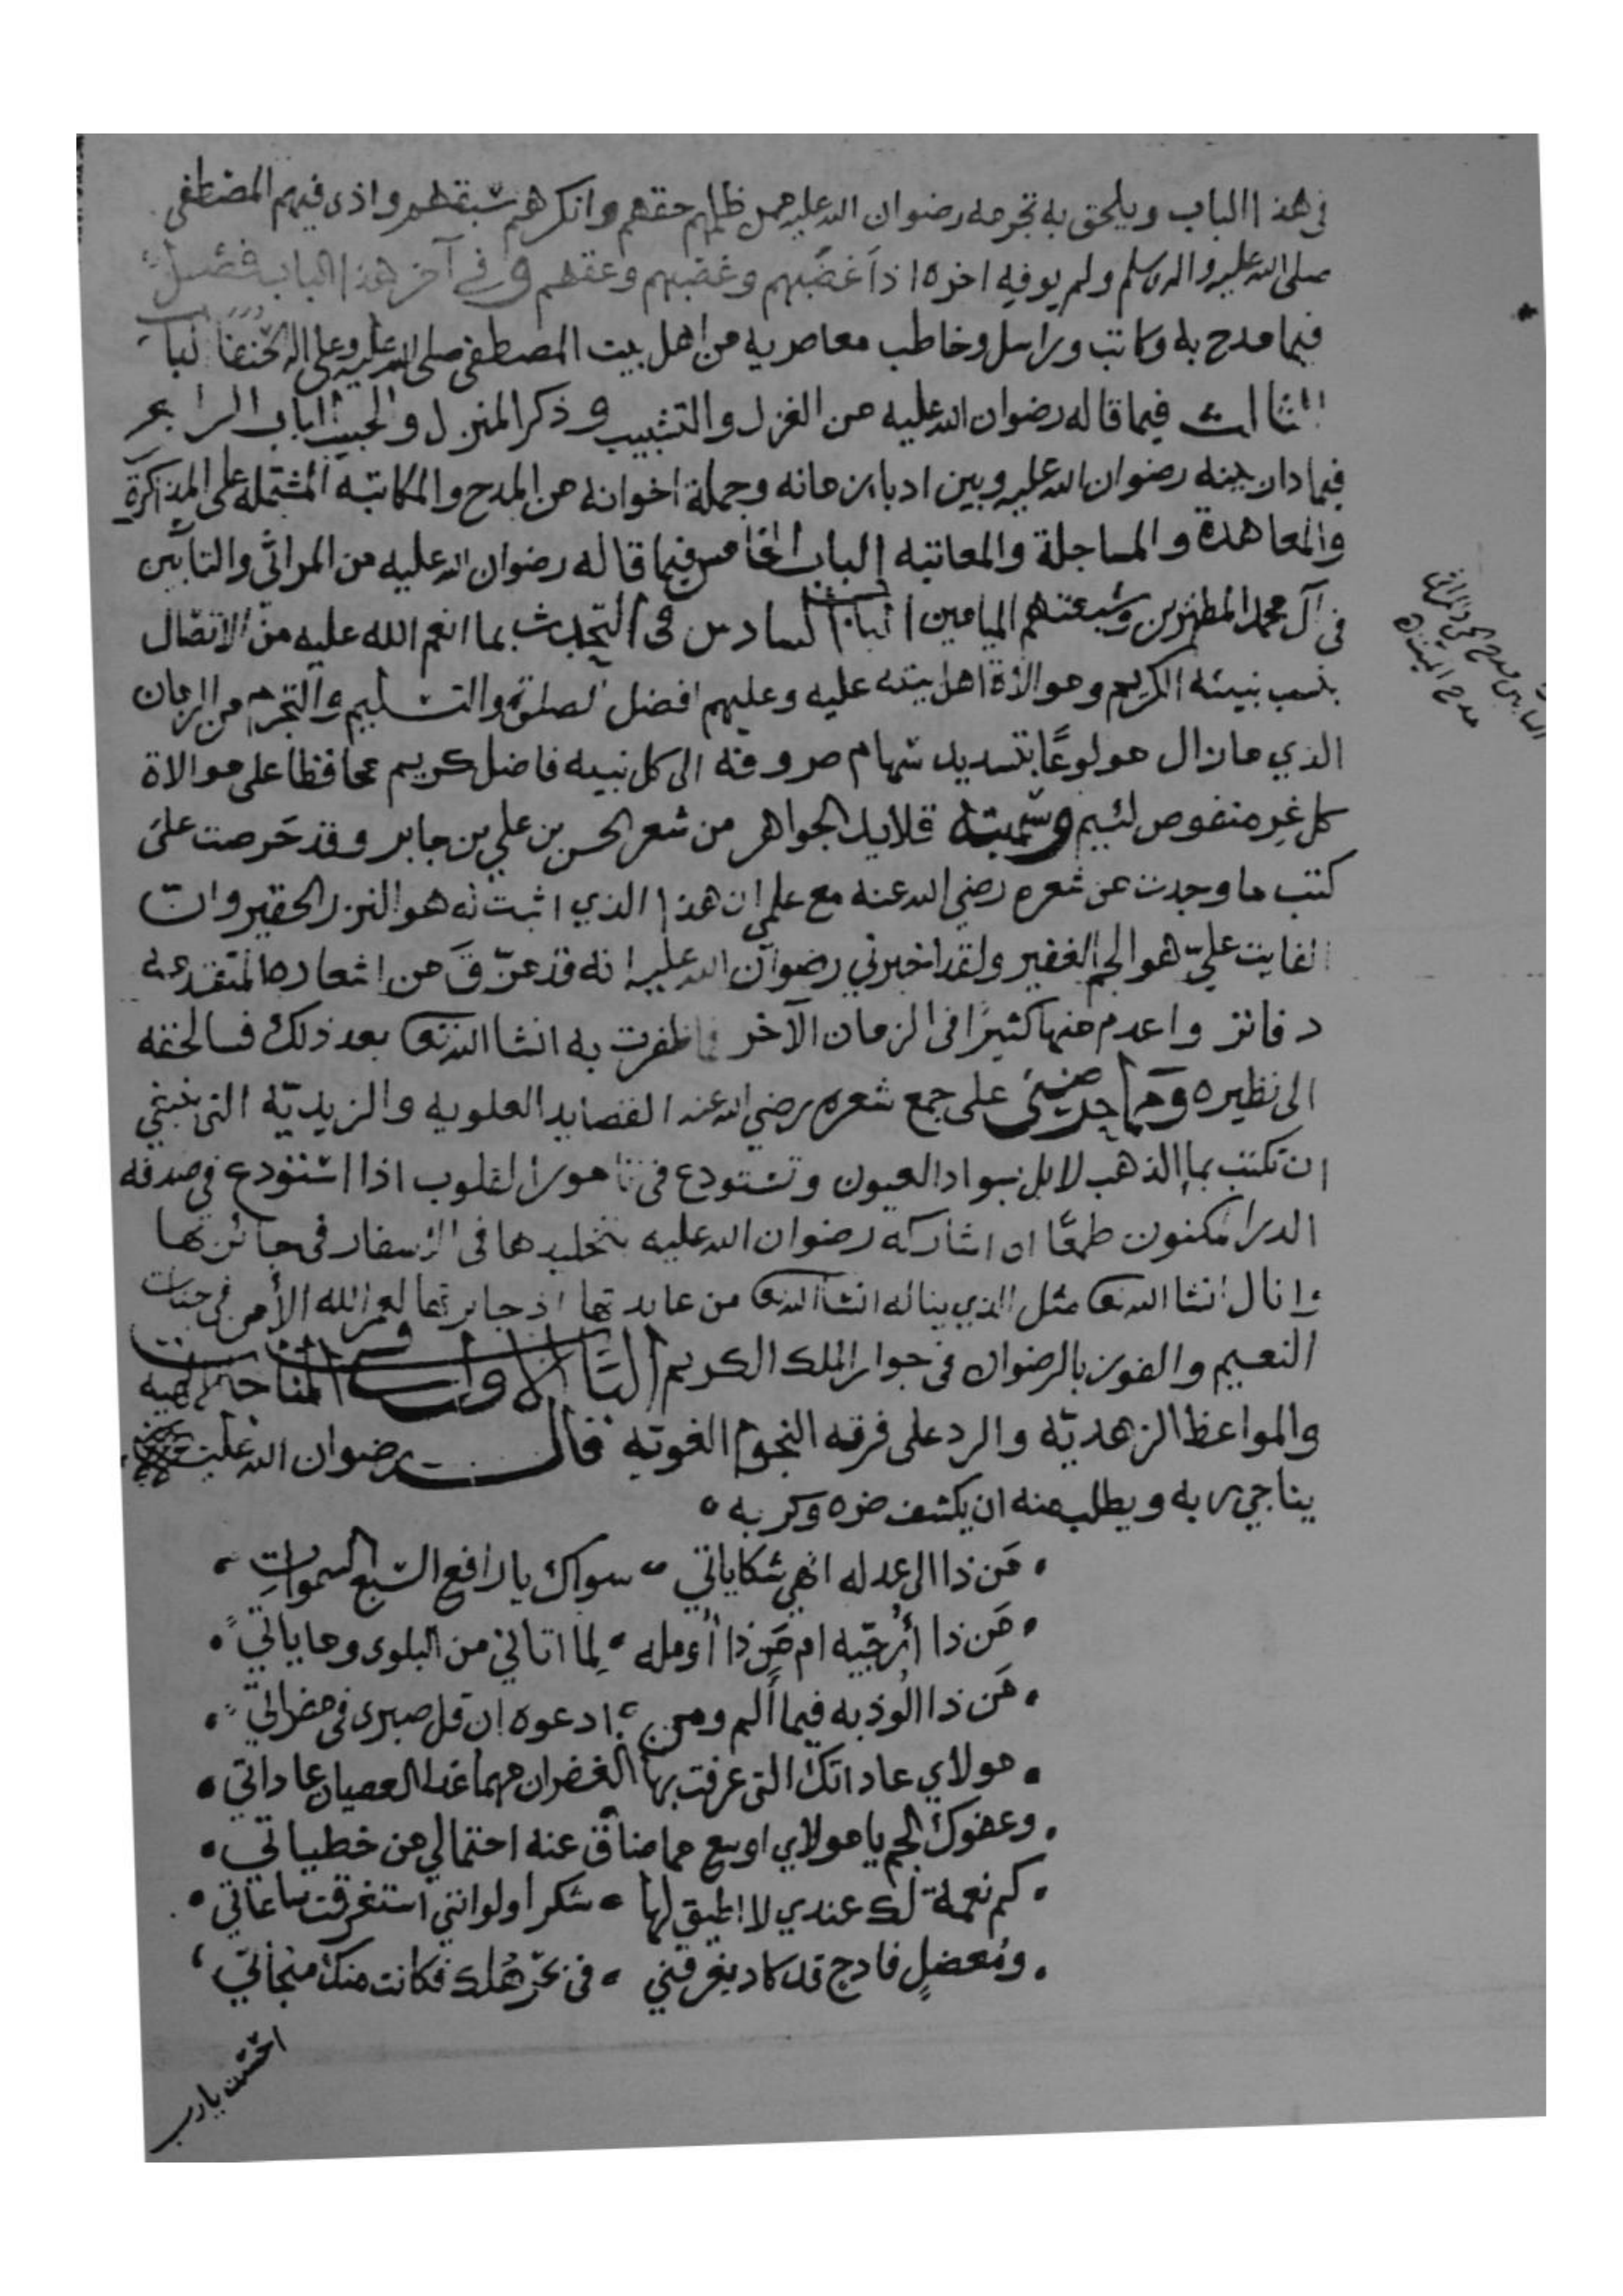 في هذا الباب ويلحق به تجرمه رضوان الله عليه ممن ظلمهم حقهم وانكرهم سبقهم واذى فيهم المصطفى
صلى الله عليه واله وسلم ولم يوفه اجره اذا غضبهم وغصبهم وعقهم وفي آخر هذا الباب فصل
فيما مدح به وكاتب وراسل وخاطب معاصريه من اهل بيت المصطفى صلى الله عليه وعلى اله الحنفا الباب
الثالث فيما قاله رضوان الله عليه من الغزل والتشبيب وذكر المنزل والحبيب الباب الرابع
فيما دار بينه رضوان الله عليه وبين ادبا زمانه وجملة اخوانه من المدح والمكاتبه المشتمله على المذاكرة
والمعاهدة والمساجلة والمعاتبه الباب الخامس فيما قاله رضوان الله عليه من المراثي والتابين
في آل محمد المطهرين وشيعتهم الميامين الباب السادس في التحدث بما انعم الله عليه من الاتصال
بنسب نبيئه الكريم وموالاة اهل بيته عليه وعليهم افضل الصلوة والتسليم والتجرم من الزمان
الذي مازال مولوعًا بتسديد سهام صروفه الى كل نبيه فاضل كريم محافظا على موالاة
كل غِرٍ منقوص لئيم وسميته قلايد الجواهر من شعر الحسن بن علي بن جابر وقد حَرصت على
كتب ما وجدت من شعره رضي الله عنه مع علمي ان هذا الذي اثبت له هو النزر الحقير وان
الفايت عليّ هو الجم الغفير ولقد اخبرني رضوان الله عليه انه قد مزّقَ من اشعاره المتقدمه
دفاتر واعدم منها كثيرًا في الزمان الآخر فما ظفرت به انشا الله تعالى بعد ذلك فسالحقه
الى نظيره ومما حضني على جمع شعره رضي الله عنه القصايد العلويه والزيديّه التي ينبغي
ان تكتب بما الذهب لا بل بسواد العيون وتستودع في تامور القلوب اذا استودع في صدفه
الدر المكنون طمعًا ان اشاركه رضوان الله عليه بتخليدها في الاسفار في جائزتها
وانال انشا الله تعالى مثل الذي يناله انشا الله تعالى من عايدتها اذ جايزتها لعمر الله الأمن في جنات
النعيم والفوز بالرضوان في جوار الملك الكريم الباب الاول في المناجاة الالهيه
والمواعظ الزهديّه والرد على فرقه النجوم الغويّه قال رضوان الله عليه
يناجي ربه ويطلب منه ان يكشف ضره وكربه
مَن ذا الى عدله انهي شكاياتي سواك يا رافع السّبع السموات
مَن ذا أُرجّيه ام مَن ذا أُومله لِما اتاني من البلوى وما ياتي
مَن ذا الُوذ به فيما أَلم ومن ادعوه ان قل صبري في مضراتي
مولاي عاداتك التي عرفت بها الغفران مهما غدا العصيان عاداتي
وعفوك الجم يا مولاي اوسع مما ضاق عنه احتمالي من خطياتي
كم نعمة لك عندي لا اطيق لها شكرا ولو انني استغرقت ساعاتي
ومُعضلٍ فادح قد كاد يغرقني في بحر هُلك فكانت منك منجاتي
احسنت يارب